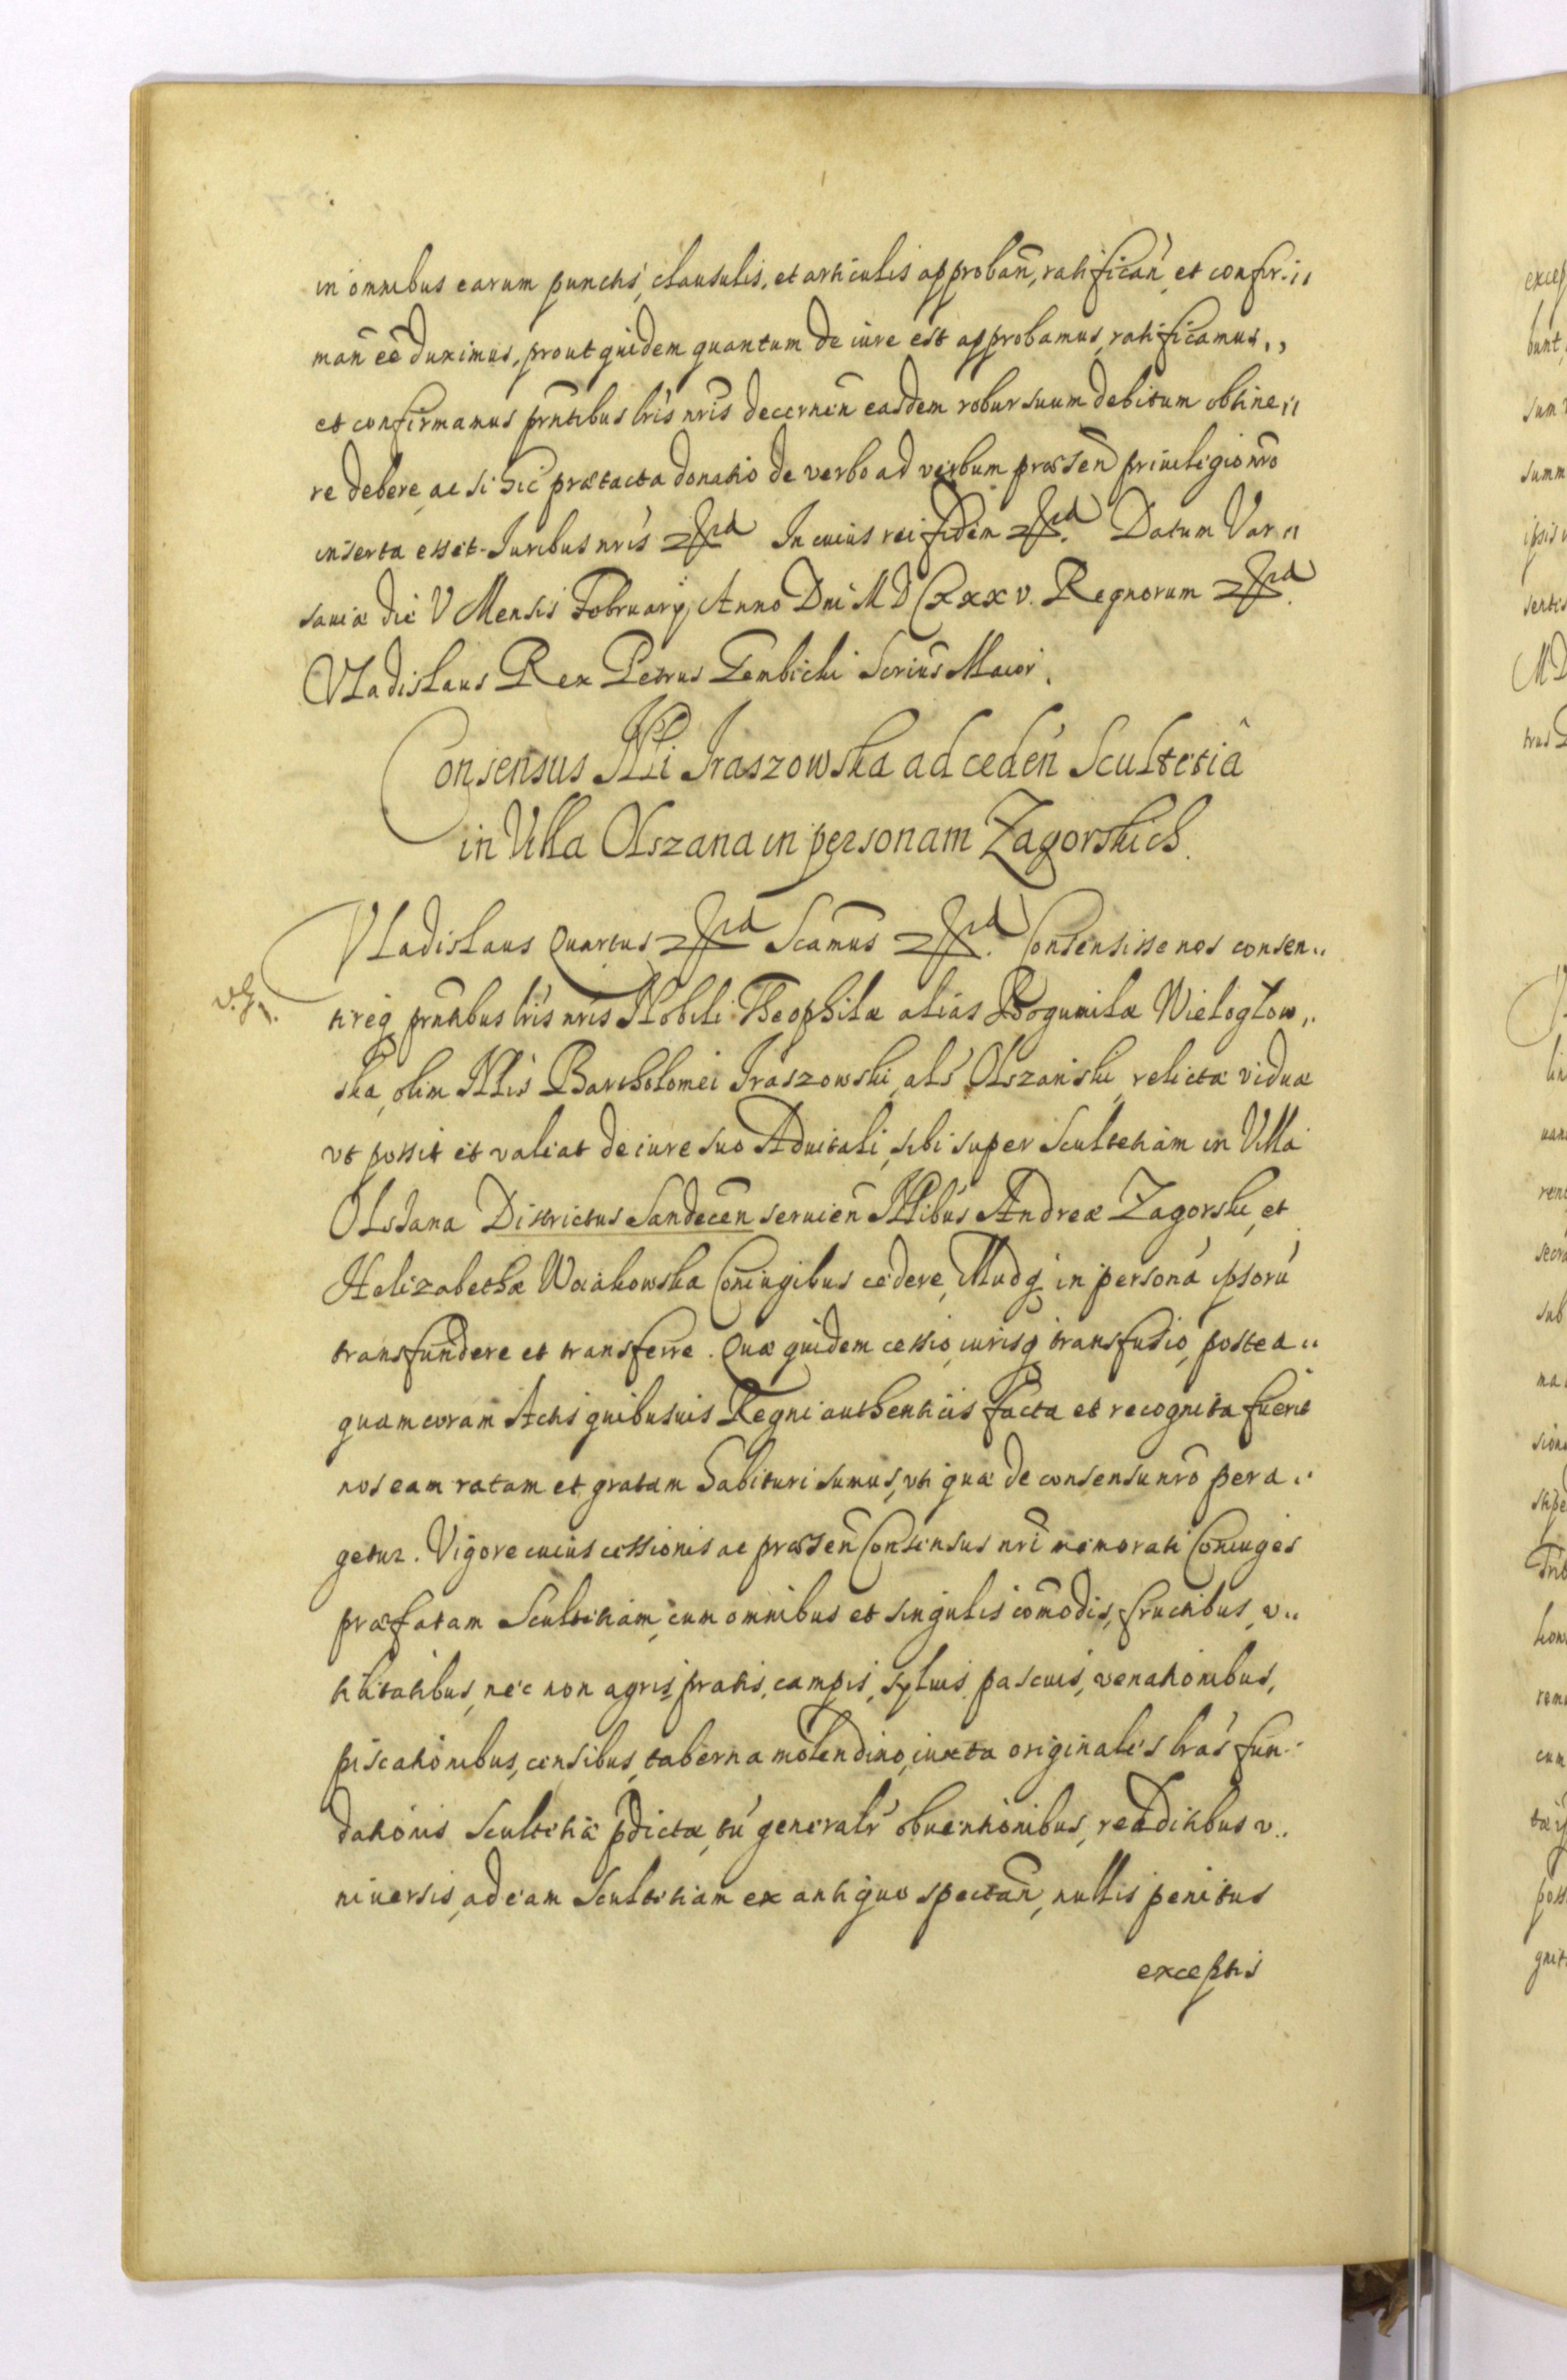 in omnibus earum punctis, clausulis, et articulis approbañ, ratificañ, et confir„
mañ eẽ duximus, prout quidem quantum de iure est approbamus, ratificamus„
et confirmamus prñtibus lris nris decernen̄ easdem robur suum debitum obtine„
re debere, ac si hic prætacta donatio de verbo ad verbum præsen̄ priuilegio nrõ
inserta esset. Juribus nris In cuius rei fidem Datum Var„
sauiæ die V Mensis February Anno Dni MDCXXXV. Regnorum
Vladislaus Rex Petrus Gembicki Secrius Maior.
Consensus Nli Iraszowska ad ceden̄ Scultetiã
in Villa Olszana in personam Zagorskich.
Vladislaus Quartus Scamus Consensisse nos consen„
tireq prñtibus lris nris Nobili Theophilæ alias Bogumilæ Wielogłow„
ska, olim Nlis Bartholomei Iraszowski, als Olszański, relictæ viduæ
vt possit et valeat de iure suo Aduitali, sibi super Scultetiam in Villa
Olsana Districtus Sandecen̄ seruien̄ Nlibus Andreæ Zagorski, et
Helizabethæ Woiakowska Coniugibus cedere, Illudq in personã ipsorũ
transfundere et transferre. Quæ quidem cessio, iurisq transfusio, postea„
quam coram Actis quibusuis Regni authenticis facta et recognita fuerit
nos eam ratam et gratam habituri sumus, vti quæ de consensu nrõ pera„
getur. Vigore cuius cessionis ac præsen̄ Consensus nri memorati Coniuges
præfatam Scultetiam, cum omnibus et singulis com̄odis, fructibus, v„
tilitatibus, nec non agris, pratis, campis, syluis, pascuis, venationibus,
piscationibus, censibus, taberna molendino, iuxta originales lras fun„
dationis Scultetiæ pdictæ, tũ generalr obuentionibus, redditibus v„
niuersis, ad eam Scultetiam ex antiquo spectañ, nullis penitus
exceptis